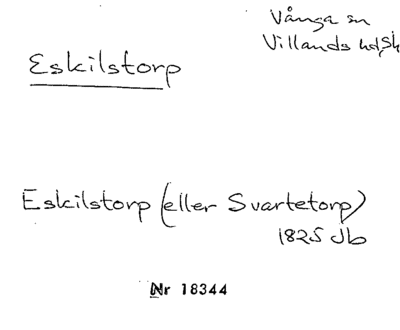 Vånga sn
Villands hd, Sk
Eskilstorp
Eskilstorp (eller Svartetorp)
1825 Jb
Nr 18344